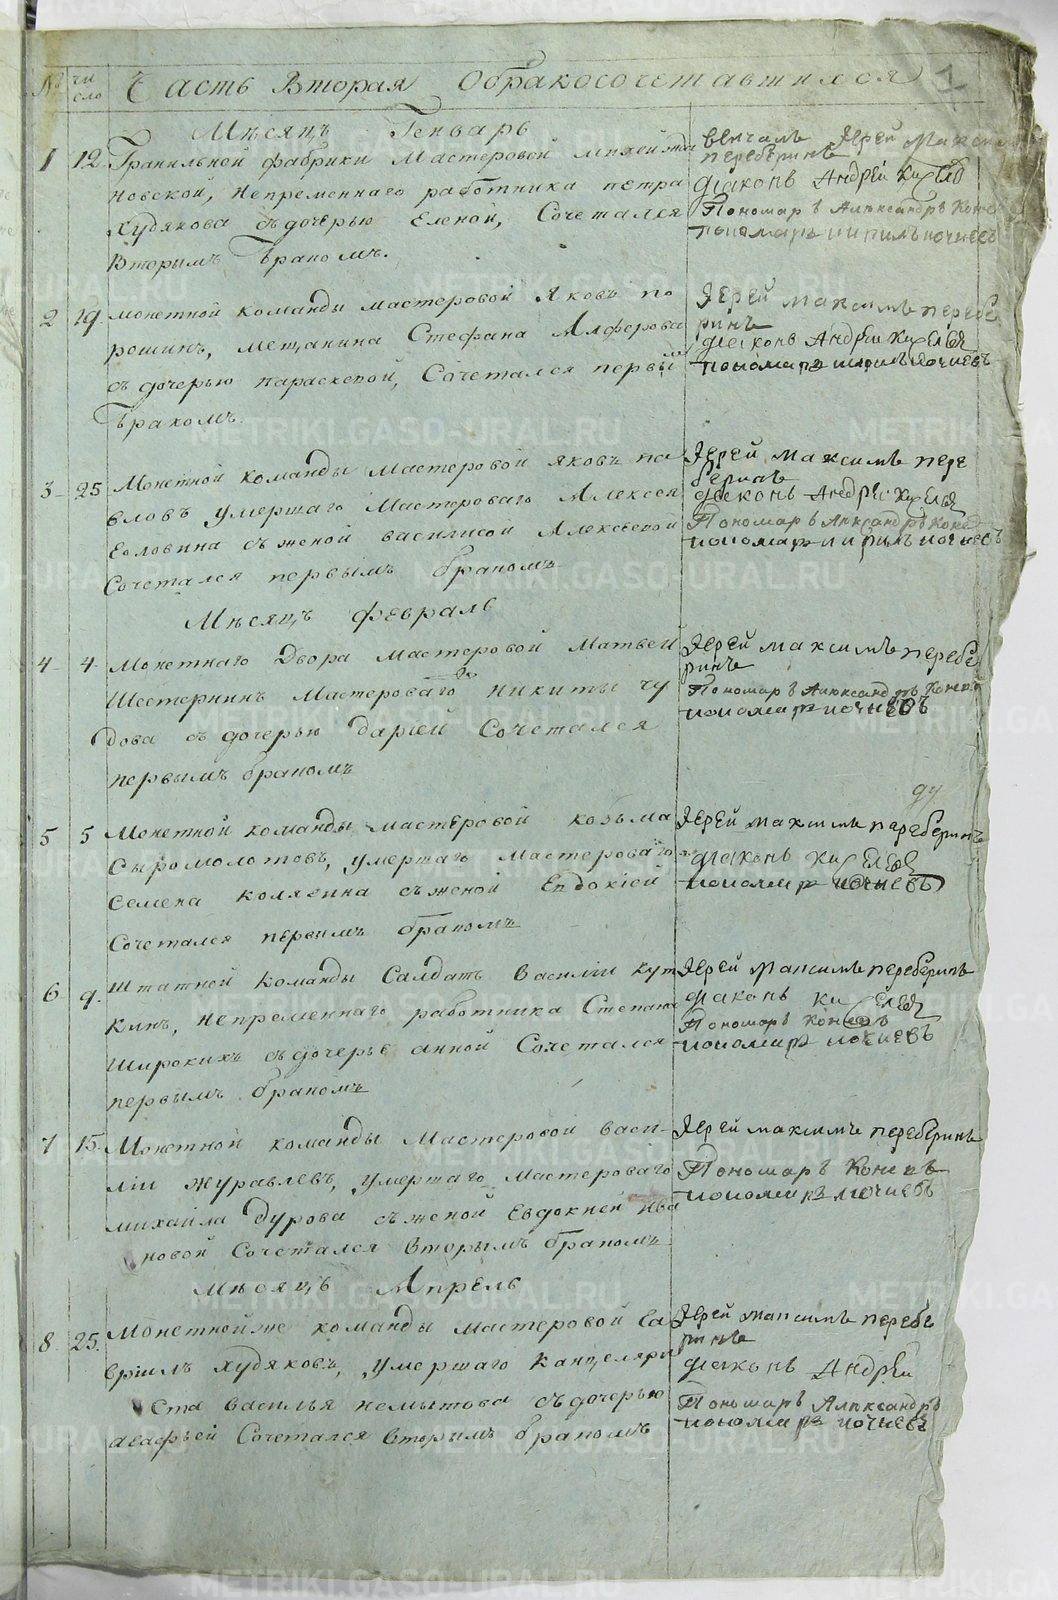 № число Часть Вторая Обракосочетавшихся
Мѣсяцъ Генварь
1 12 Гранильной фабрики Мастеровой
новской, непременнаго работника петра
Худякова съ дочерью Еленой, Сочетался
Вторымъ Бракомъ.
венчалъ Іерей Максимъ
переберинъ
діаконъ Андрей Киселев
Пономарь Александръ
пономарь кирилъ ночневъ
2 19. монетной команды мастеровой Яковъ по
рошинъ, мещанина Стефана Алферова
съ дочерью параскевой, Сочетался первымъ
Бракомъ.
Іерей Максимъ перебе
ринъ
діаконъ Андрей Киселев
пономарь кирилъ ночневъ
3 25 Монетной команды Мастеровой Яковъ па
вловъ умершаго Мастероваго Алексея
съ женой василисой Алексеевой
Сочетался первымъ бракомъ
Іерей Максимъ пере
беринъ
діаконъ Андрей Киселев
Пономарь Александръ
пономарь кирилъ ночневъ
Мѣсяцъ февраль
4 4 Монетнаго Двора мастеровой Матвей
Шестернинъ Мастероваго никиты чу
дова съ дочерью дарией Сочетался
первымъ бракомъ
Іерей Максимъ перебе
ринъ
Пономарь Александръ
пономарь ночневъ
5 5 Монетной команды мастеровой козьма
Сыромолотовъ, умершаго Мастероваго
Семена колягина съ женой Евдокіей
Сочетался первымъ бракомъ
Іерей Максимъ переберинъ
діаконъ Киселев
пономарь ночневъ
6 9. Штатной команды Салдатъ Василіи кут
кинъ, непременнаго работника Степана
Широкихъ съ дочерью анной Сочетался
первымъ бракомъ
Іерей Максимъ переберинъ
діаконъ Киселев
Пономарь Коневъ
пономарь ночневъ
7 15. Монетной команды Мастеровой васи-
ліи Журавлевъ, умершаго Мастероваго
михаила дурова съ женой Евдокией ива
новой Сочетался вторымъ бракомъ
Іерей максимъ переберинъ
Пономарь Коневъ
пономарь ночневъ
Мѣсяцъ Апрель
8. 25. Монетной же команды мастеровой Га
врiилъ Худяковъ, умершаго канцеляри
ста василья немытова съ дочерью
агафьей Сочетался вторымъ бракомъ
Іерей максимъ перебе
ринъ
діаконъ Андрей
Пономарь Александръ
пономарь ночневъ
METRIKI.GASO-URAL.RU